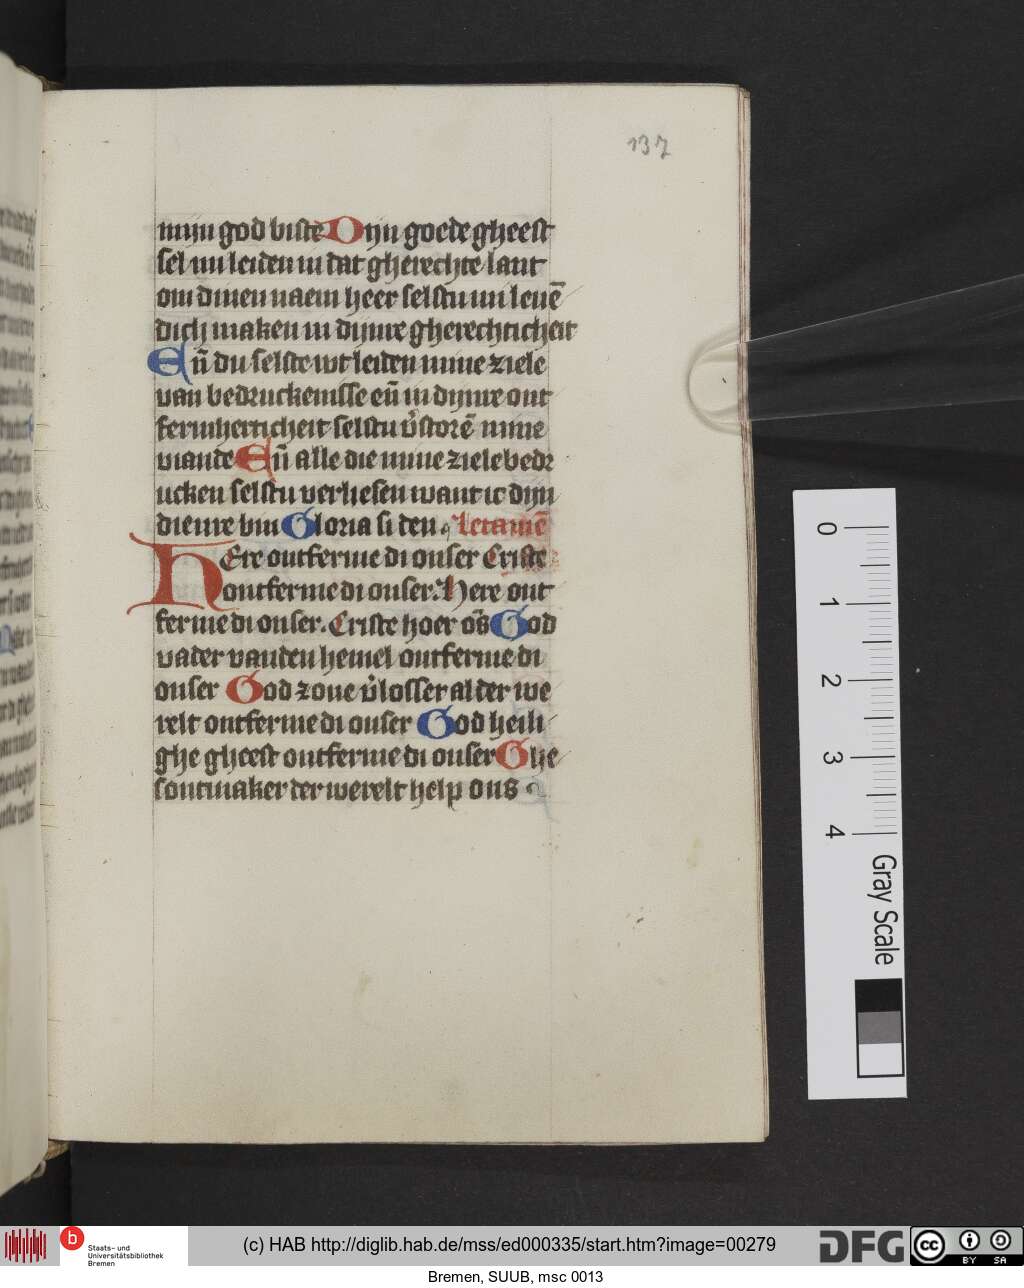 137
mijn god biste Dijn goede gheest
sel mi leiden in dat gherechte lant
om dinen naem heer selstu mi leuē
dich maken in dijnre gherechticheit
Eñ du selste wt leiden mine ziele
van bedruckenisse eñ in dijnre ont
fermherticheit selstu v̉storē mine
viande Eñ alle die mine ziele bedr
ucken selstu verliesen want ic dijn
dienre bin Gloria si den Letaniē
HEre ontferme di onser Criste
ontferme di onser. Here ont
ferme di onser. Criste hoer ōs God
vader vanden hemel ontferme di
onser God zone v̉losser alder we
relt ontferme di onser God heili
ghe gheest ontferme di onser Ghe
sontmaker der werelt help ons
0
1
2
3
4
Gray Scale
b
Staats- und
Universitätsbibliothek
Bremen
(c) HAB http://diglib.hab.de/mss/ed000335/start.htm?image=00279
DFG
cc
BY SA
Bremen, SUUB, msc 0013